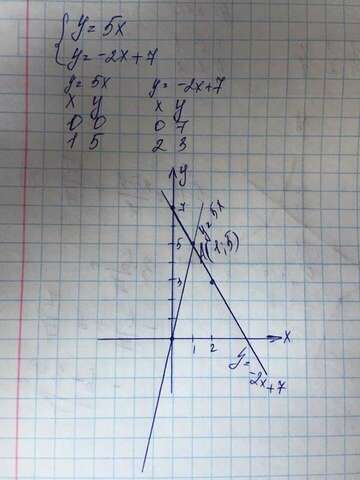 y = 5x
y = -2x + 7
y = 5x y = -2x + 7
x y x y
0 0 0 7
1 5 2 3
y
7
y = 5x
5
A(1; 5)
3
1 2
x
y = -2x + 7